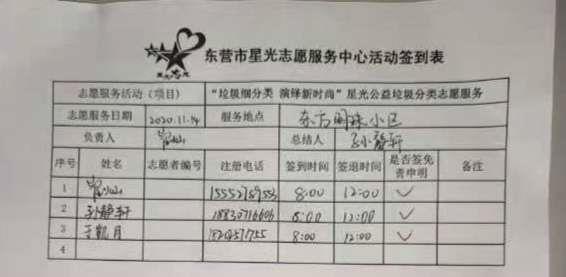 东营市星光志愿服务中心活动签到表
志愿服务活动（项目） “垃圾细分类 演绎新时尚”星光公益垃圾分类志愿服务
志愿服务日期 2020.11.14 服务地点 东方明珠小区
负责人 总结人 孙静轩
序号 姓名 志愿者编号 注册电话 签到时间 签退时间 是否签免责申明 备注
1 8:00 12:00 ✓
2 孙静轩 18830716606 8:00 12:00 ✓
3 于凯月 8:00 12:00 ✓
4